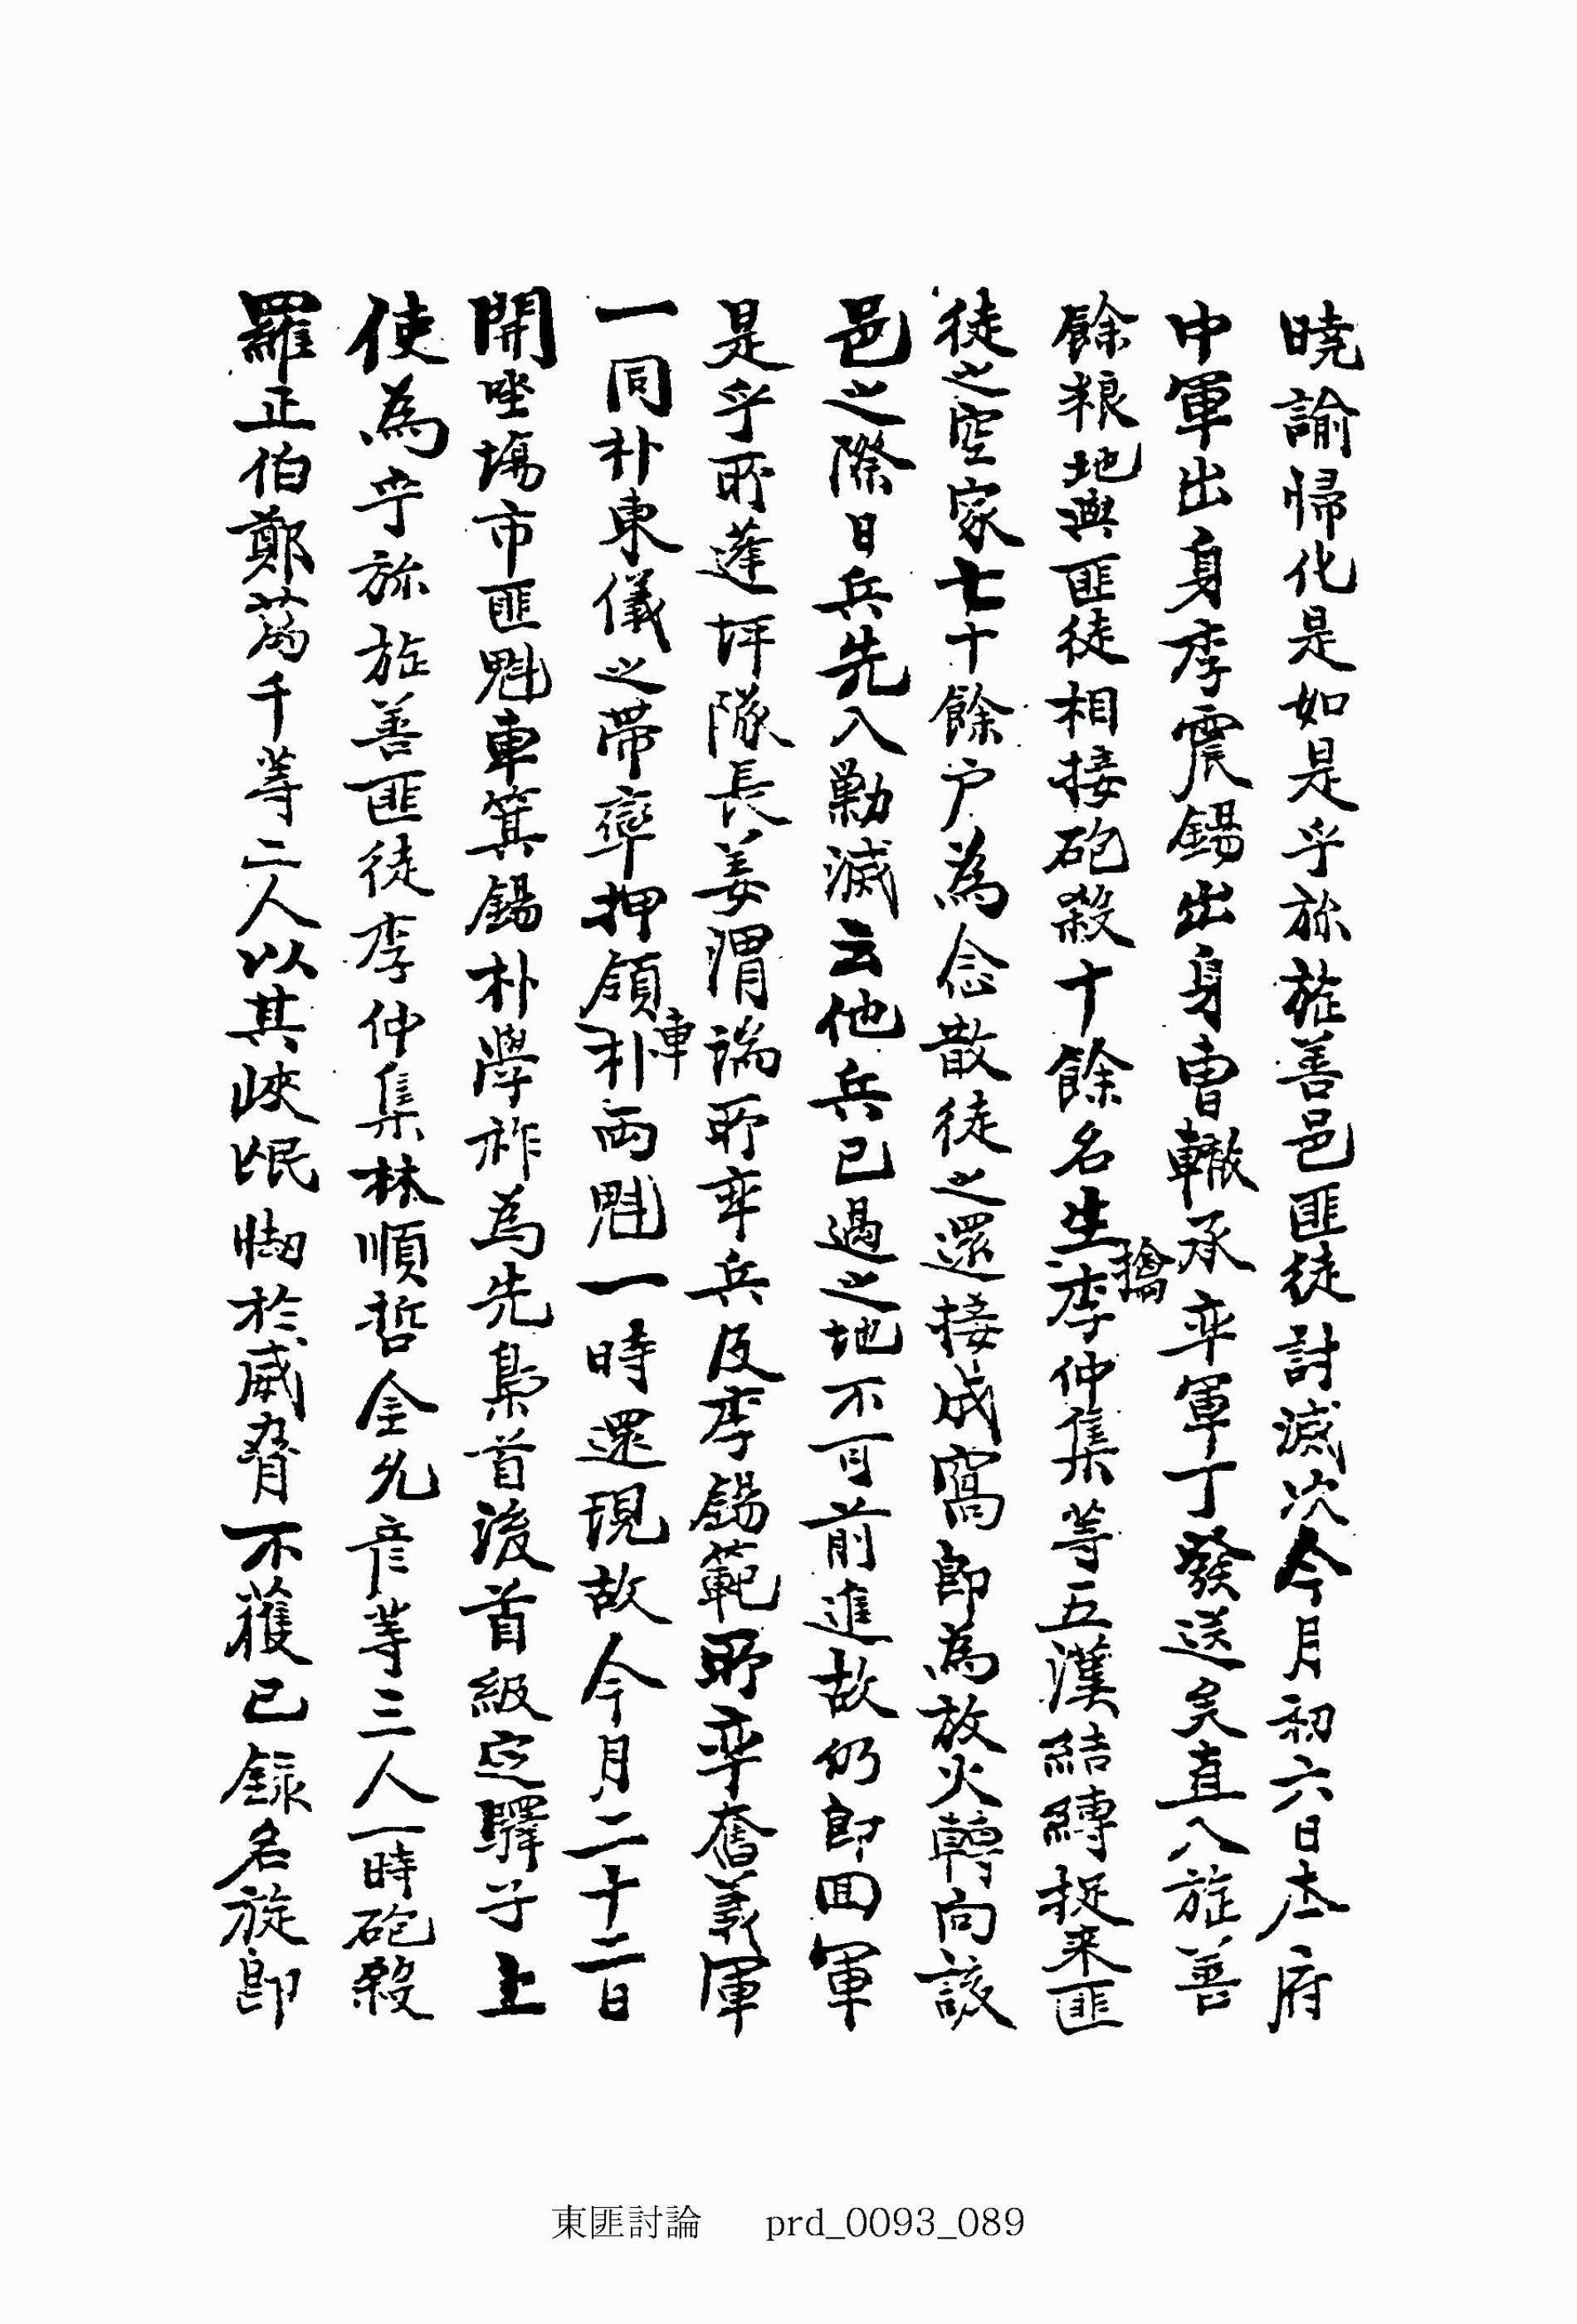 曉諭歸化是如是乎旀旌善邑匪徒討滅次今月初六日本府
中軍出身李震錫出身曺轍承率軍丁發送矣直入旌善
餘粮地與匪徒相接砲殺十餘名生擒李仲集等五漢結縛捉來匪
徒之空家七十餘户為念散徒之還接成窩卽為放火轉向該
邑之際日兵先入勦滅云他兵已過之地不可前進故仍卽回軍
是乎所蓬坪隊長姜渭瑞所率兵及李錫範所率奮義軍
一同朴東儀之帶率押領車朴兩魁一時還現故今月二十二日
開坐場市匪魁車箕錫朴學祚為先梟首後首級定驛子上
使為乎旀旌善匪徒李仲集林順哲金允彦等三人一時砲殺
羅正伯鄭萬千等二人以其峽氓㥘於威脅不獲已錄名旋卽
東匪討論 prd_0093_089